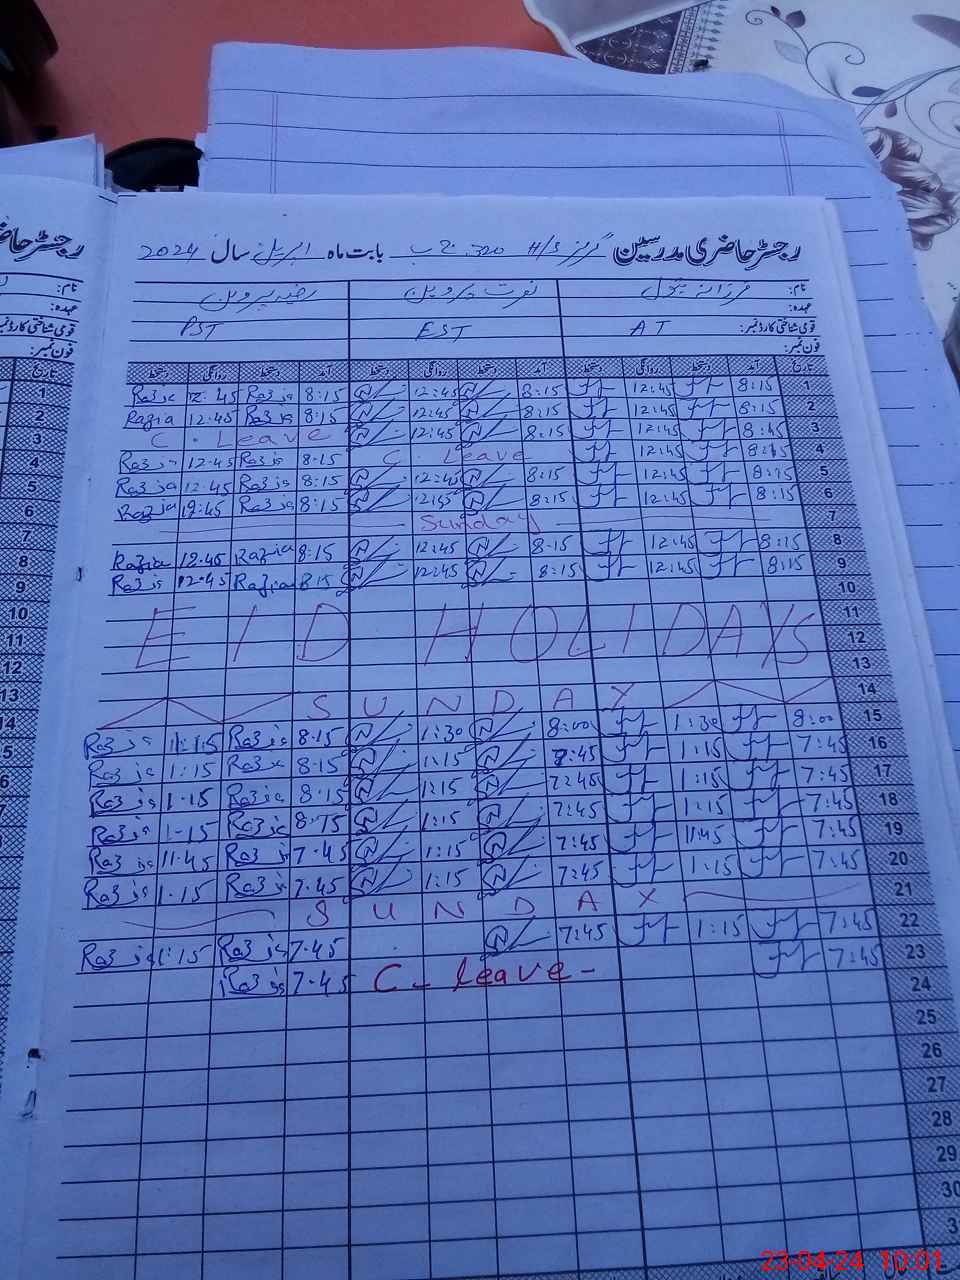 رجسٹر حاضری مدرسین گرلز H/S 320 ج ب بابت ماہ اپریل سال 2024
نام: فرزانہ بتول نصرت پروین رضیہ پروین
عہدہ:
قومی شناختی کارڈ نمبر: AT EST PST
فون نمبر:
تاریخ آمد دستخط روانگی دستخط آمد دستخط روانگی دستخط آمد دستخط روانگی دستخط
1 8:15 12:45 8:15 12:45 8:15 Razia 12:45 Razia
2 8:15 12:45 8:15 12:45 8:15 Razia 12:45 Razia
3 8:45 12:45 8:15 12:45 C. Leave
4 8:15 12:45 C. Leave 8:15 Razia 12:45 Razia
5 8:15 12:45 8:15 12:45 8:15 Razia 12:45 Razia
6 8:15 12:45 8:15 12:45 8:15 Razia 12:45 Razia
7 Sunday
8 8:15 12:45 8:15 12:45 8:15 Razia 12:45 Razia
9 8:15 12:45 8:15 12:45 8:15 Razia 12:45 Razia
10
11
12 EID HOLIDAYS
13
14 SUNDAY
15 8:00 1:30 8:00 1:30 8:15 Razia 11:15 Razia
16 7:45 1:15 7:45 1:15 8:15 Razia 1:15 Razia
17 7:45 1:15 7:45 1:15 8:15 Razia 1:15 Razia
18 7:45 1:15 7:45 1:15 8:15 Razia 1:15 Razia
19 7:45 11:45 7:45 1:15 7:45 Razia 11:45 Razia
20 7:45 1:15 7:45 1:15 7:45 Razia 1:15 Razia
21 SUNDAY
22 7:45 1:15 7:45 7:45 Razia 1:15 Razia
23 7:45 C. leave 7:45 Razia
24
25
26
27
28
29
30
23-04-24 10:01